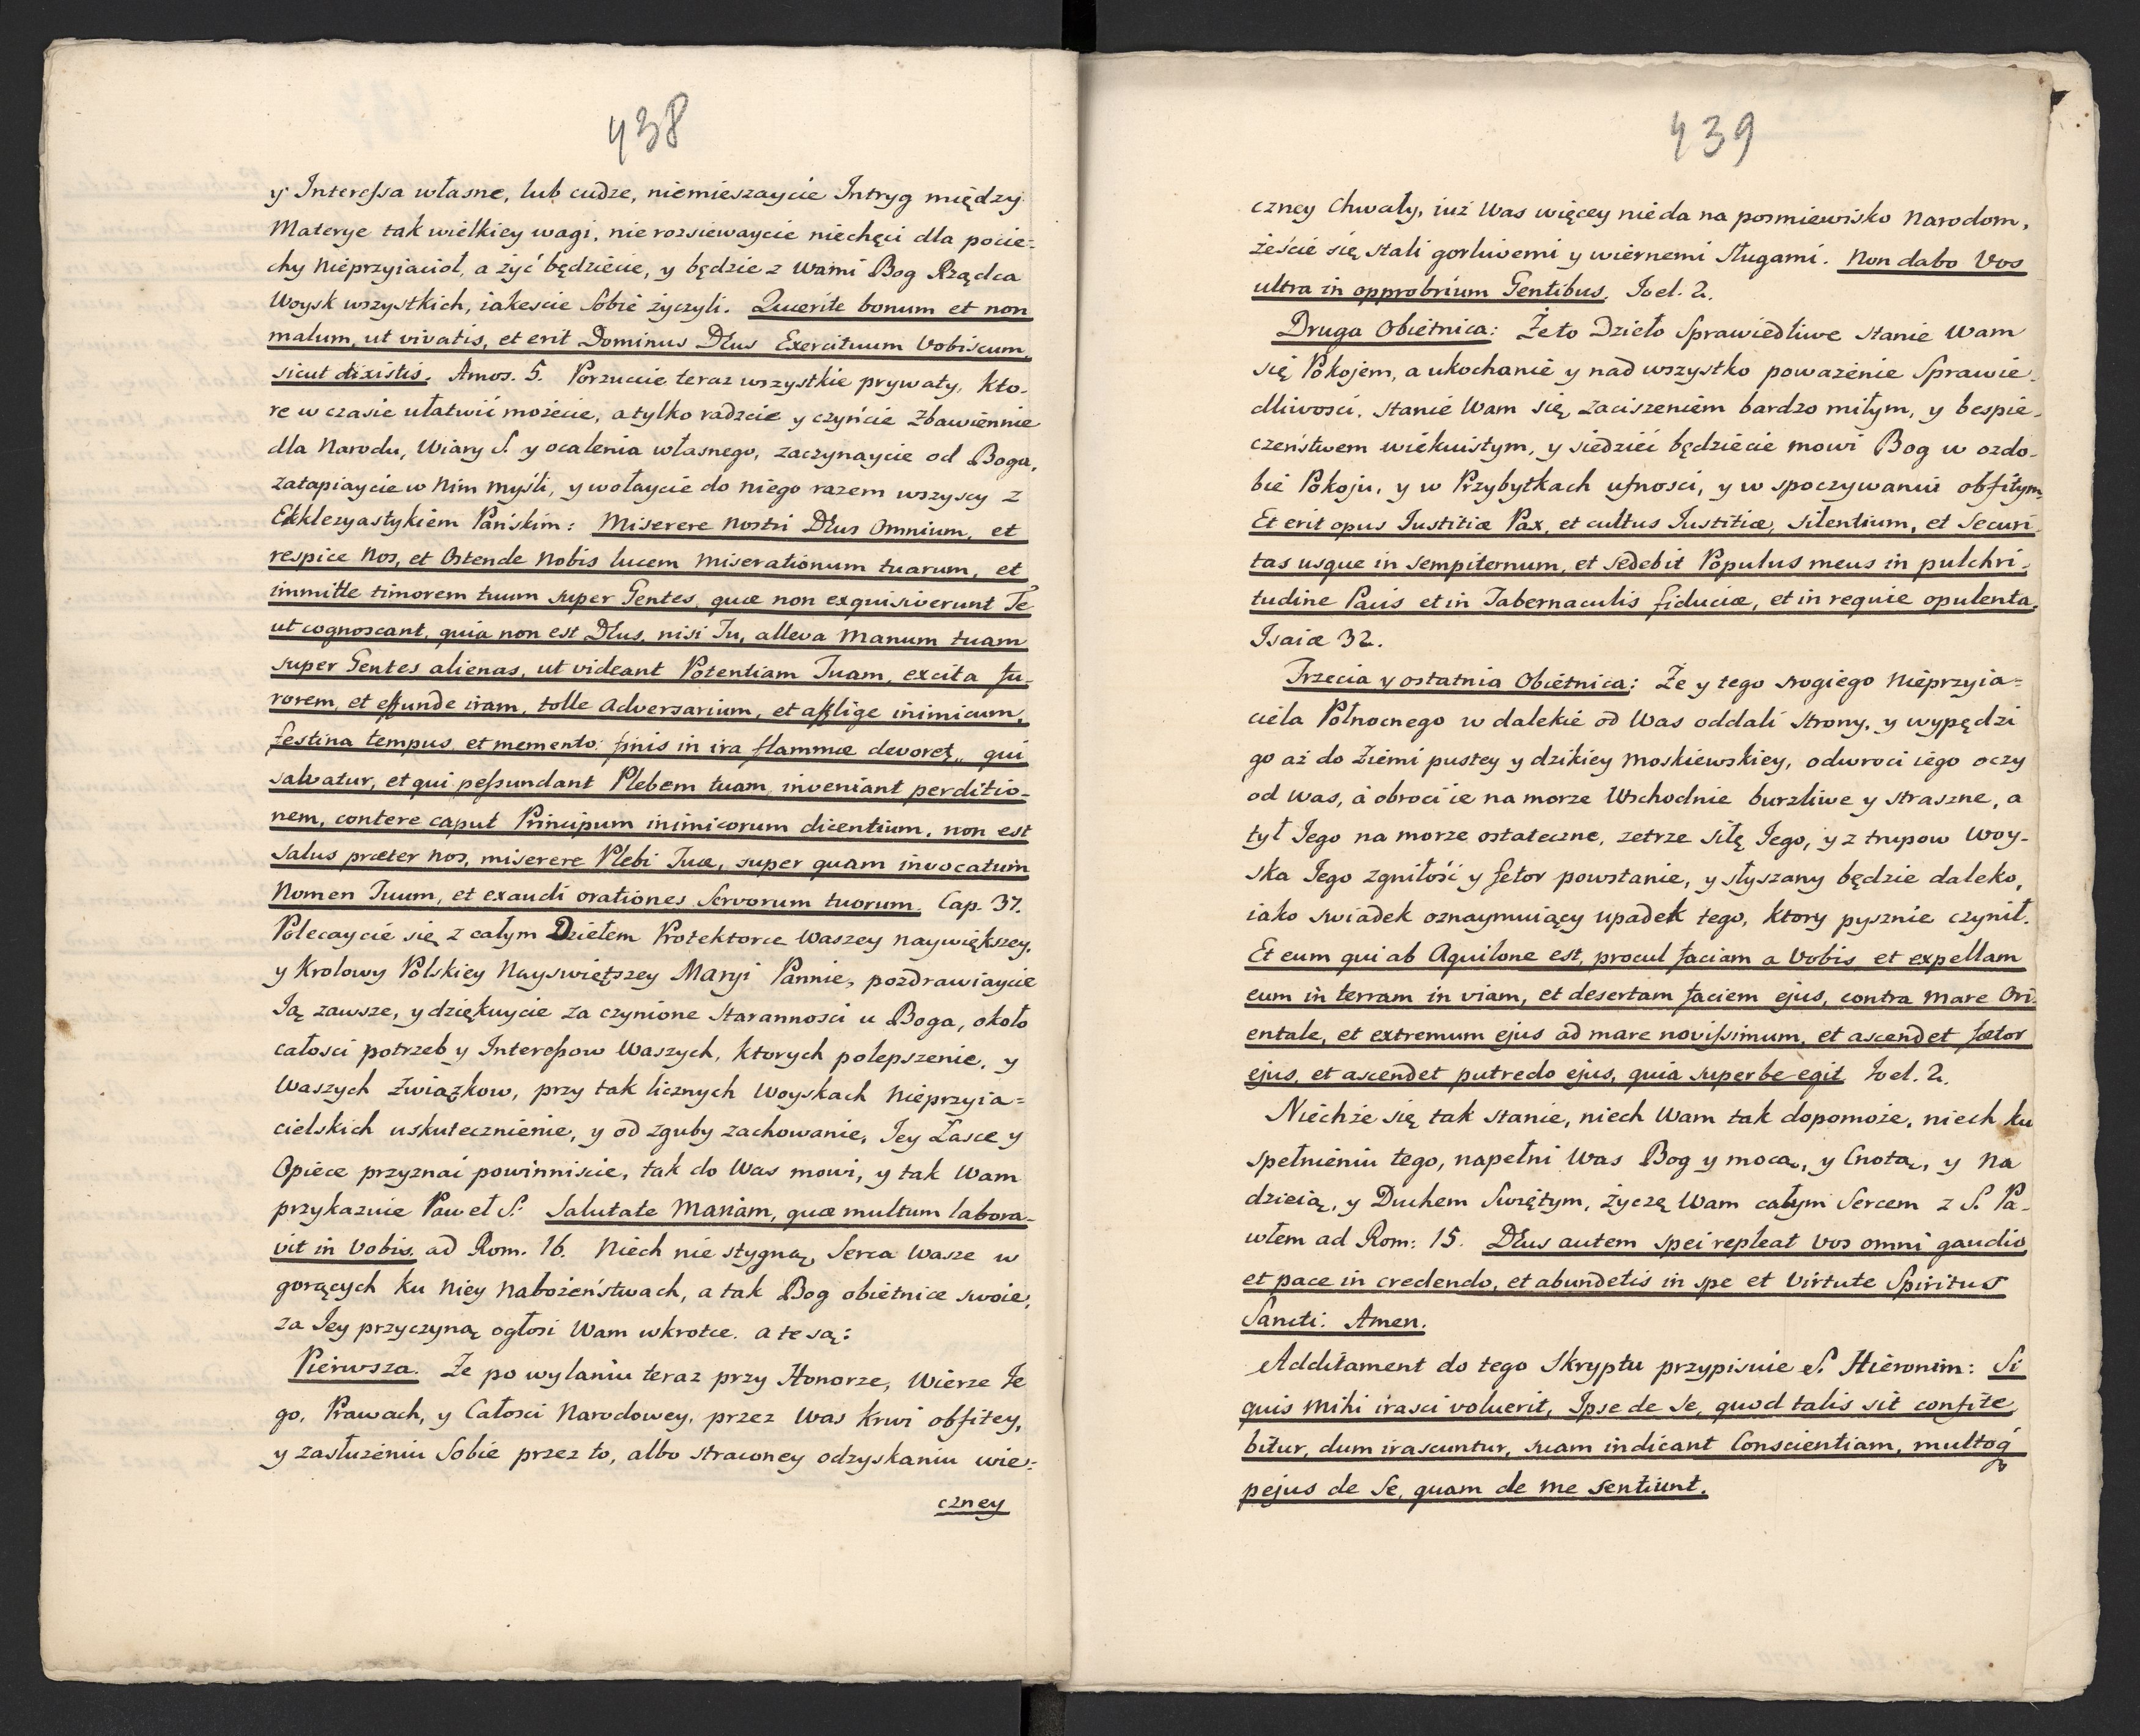 438
y Interessa własne, lub cudze, niemieszaycie Intryg między
Materye tak wielkiey wagi, nie rozsiewaycie niechęci dla pocie=
chy Nieprzyiacioł, a żyć będziecie, y będzie z Wami Bog Rządca
Woysk wszystkich, iakescie Sobie życzyli. Quærite bonum et non
malum, ut vivatis, et erit Dominus DEus Exercituum Vobiscum
sicut dixistis. Amos. 5. Porzuccie teraz wszystkie prywaty, kto-
re w czasie ułatwić możecie, a tylko radzcie y czyńcie Zbawiennie
dla Narodu, Wiary S. y ocalenia własnego, zaczynaycie od Boga,
zatapiaycie w Nim Myśli, y wołaycie do niego razem wszyscy z
Ekklezyastykiem Pańskim: Miserere Nostri DEus Omnium, et
respice Nos, et Ostende Nobis lucem Miserationum tuarum, et
immitte timorem tuum super Gentes, quæ non exquisiverunt Te
ut cognoscant, quia non est DEus, nisi Tu, alleva Manum tuam
super Gentes alienas, ut videant Potentiam Tuam, excita fu-
rorem, et effunde iram, tolle Adversarium, et afflige inimicum,
festina tempus et memento finis in ira flammæ devoret, qui
salvatur, et qui pessundant Plebem tuam, inveniant perditio-
nem, contere caput Principum inimicorum dicentium, non est
Salus præter nos, miserere Plebi Tuæ, super quam invocatum
Nomen Tuum, et exaudi orationes Servorum tuorum. Cap. 37.
Polecaycie się z całym Dziełem Protektorce Waszey naywiększey,
y Krolowy Polskiey Nayswiętszey Maryi Pannie, pozdrawiaycie
Ją zawsze, y dziękuycie za czynione Starannosci u Boga, około
całosci potrzeb y Interessow Waszych, ktorych polepszenie, y
Waszych Związkow, przy tak licznych Woyskach Nieprzyia=
cielskich uskutecznienie, y od zguby zachowanie, Jey Łasce y
Opiece przyznai powinniscie, tak do Was mowi, y tak Wam
przykazuie Paweł S: Salutate Mariam, quæ multum labora-
vit in Vobis. ad Rom. 16. Niech nie stygną Serca Wasze w
gorących ku Niey Nabożeństwach, a tak Bog obietnice swoie,
za Jey przyczyną ogłosi Wam wkrotce. a te są:
Pierwsza. Że po wylaniu teraz przy Honorze, Wierze Je
go, Prawach, y Całosci Narodowey, przez Was Krwi obfitey,
y zasłużeniu Sobie przez to, albo straconey odzyskaniu wie=
czney
439
czney Chwały, iuż Was więcey nie da na posmiewisko Narodom,
żeście się stali gorliwemi y wiernemi Sługami. Non dabo Vos
ultra in opprobrium Gentibus. Joel. 2.
Druga Obietnica: Że to Dzieło Sprawiedliwe stanie Wam
się Pokojem, a ukochanie y nad wszystko poważenie Sprawie-
dliwosci, stanie Wam się zaciszeniem bardzo miłym, y bespie-
czeństwem wiekuistym, y siedzieć będziecie mowi Bog w ozdo-
bie Pokoju, y w Przybytkach ufnosci, y w spoczywaniu obfitym
Et erit opus Justitiæ Pax, et cultus Justitiæ, silentium, et Securi-
tas usque in Sempiternum, et sedebit Populus meus in pulchri-
tudine Pacis et in Tabernaculis fiduciæ, et in requie opulenta.
Isaiæ 32.
Trzecia y ostatnia Obietnica: Że y tego srogiego Nieprzyia=
ciela Połnocnego w dalekie od Was oddali Strony, y wypędzi
go aż do Ziemi pustey y dzikiey Moskiewskiey, odwroci iego oczy
od Was, a obroci ie na morze Wschodnie burzliwe y straszne, a
tył Jego na morze ostateczne, zetrze siłę Jego, y z trupow Woy-
ska Jego zgniłość y fetor powstanie, y słyszany będzie daleko,
iako swiadek oznaymuiący upadek tego, ktory pysznie czynił.
Et eum qui ab Aquilone est, procul faciam a Vobis, et expellam
eum in terram in viam, et desertam faciem ejus, contra Mare Ori-
entale, et extremum ejus ad mare novissimum, et ascendet fœtor
ejus, et ascendet putredo ejus, quia superbe egit. Joel. 2.
Niechże się tak stanie, niech Wam tak dopomoże, niech ku
spełnieniu tego, napełni Was Bog y mocą, y Cnotą, y Na
dzieią, y Duchem Swiętym, życzę Wam całym Sercem z S. Pa-
włem ad Rom: 15. DEus autem Spei repleat Vos omni gaudio,
et pace in credendo, et abundetis in spe et Virtute Spiritus
Sancti. Amen.
Additament do tego Skryptu przypisuie S. Hieronim: Si
quis Mihi irasci voluerit, Ipse de Se, quod talis sit confite
bitur, dum irascuntur, suam indicant Conscientiam, multoq
pejus de Se, quam de Me sentiunt.